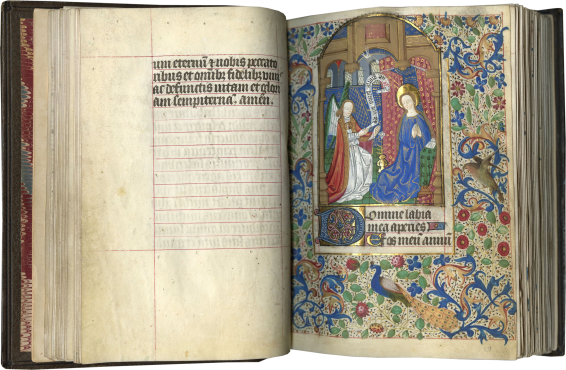 um eternū ⁊ nobis peccato
ribus et omībꝫ fidelibꝫ viuis
ac defunctis vitam et glori
am sempiternā. amen.
Domine labia
mea aperies
Et os meū annū